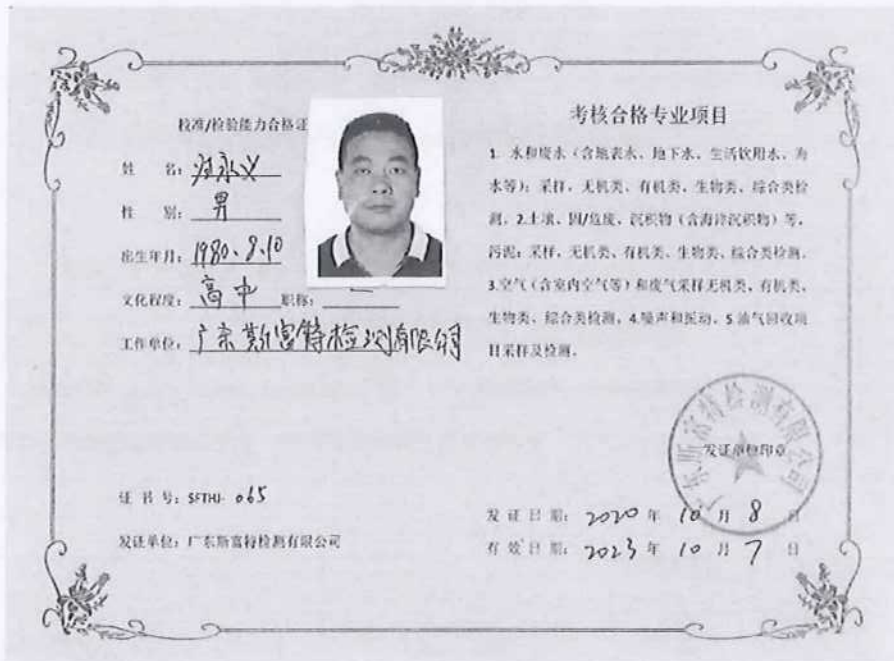 校准/检验能力合格证
姓 名：汪永义
性 别：男
出生年月：1980.8.10
文化程度：高中 职称：一
工作单位：广东斯富特检测有限公司
证 书 号：SFTHJ- 065
发证单位：广东斯富特检测有限公司
考核合格专业项目
1. 水和废水（含地表水、地下水、生活饮用水、海
水等）：采样，无机类、有机类、生物类、综合类检
测。2.土壤、固/危废、沉积物（含海洋沉积物）等，
污泥：采样，无机类、有机类、生物类、综合类检测。
3.空气（含室内空气等）和废气采样无机类、有机类、
生物类、综合类检测。4.噪声和振动。5.油气回收项
目采样及检测。
广东斯富特检测有限公司
发证单位印章
发 证 日 期： 2020 年 10 月 8 日
有 效 日 期： 2023 年 10 月 7 日